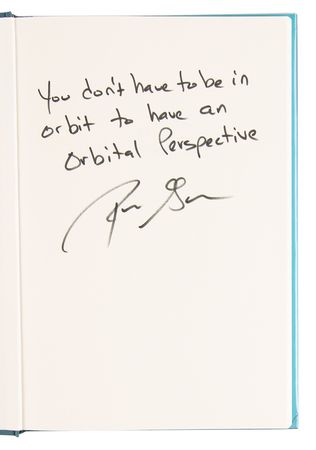 You don't have to be in
orbit to have an
Orbital Perspective